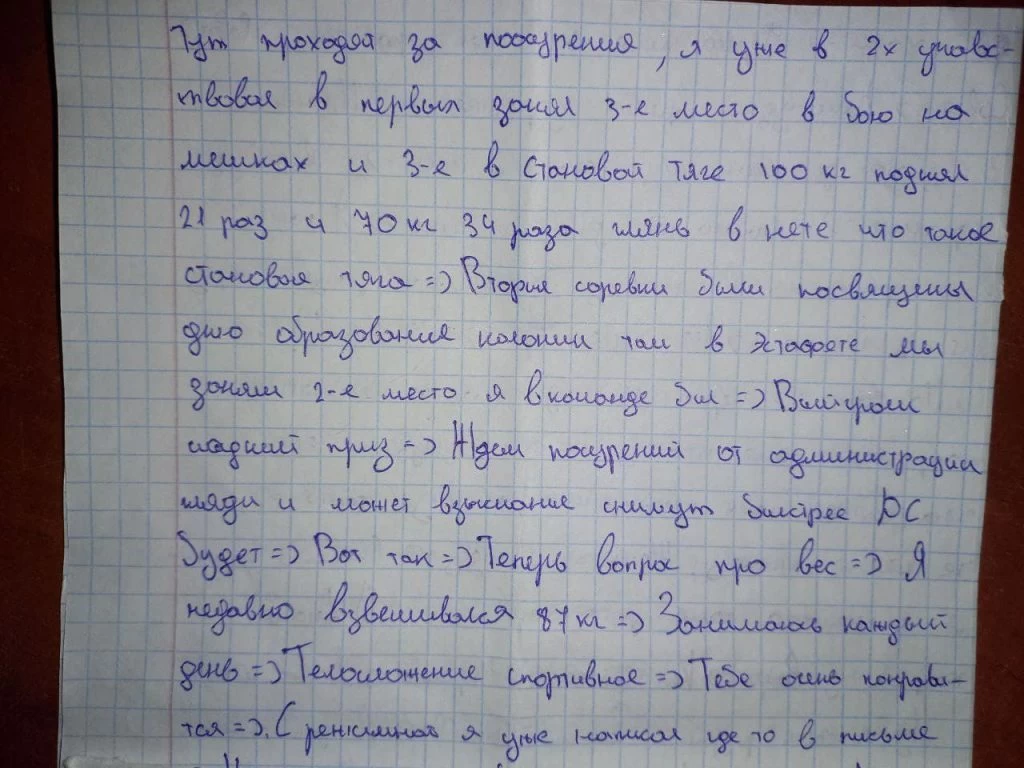 Тут проходят за поощрения, я уже в 2х учавс-
твовал в первых занял 3-е место в бою на
мешках и 3-е в становой тяге 100 кг поднял
21 раз и 70 кг 34 раза глянь в нете что такое
становая тяга => Вторые соревн были посвящены
дню образования колонии там в эстафете мы
заняли 2-е место я в команде был => Выиграли
сладкий приз => Ждем поощрений от администрации
гляди и может взыскание снимут быстрее ДС
будет => Вот так => Теперь вопрос про вес => Я
недавно взвешивался 87 кг => Занимаюсь каждый
день => Телосложение спортивное => Тебе очень понрави-
тся => С я уже написал где то в письме